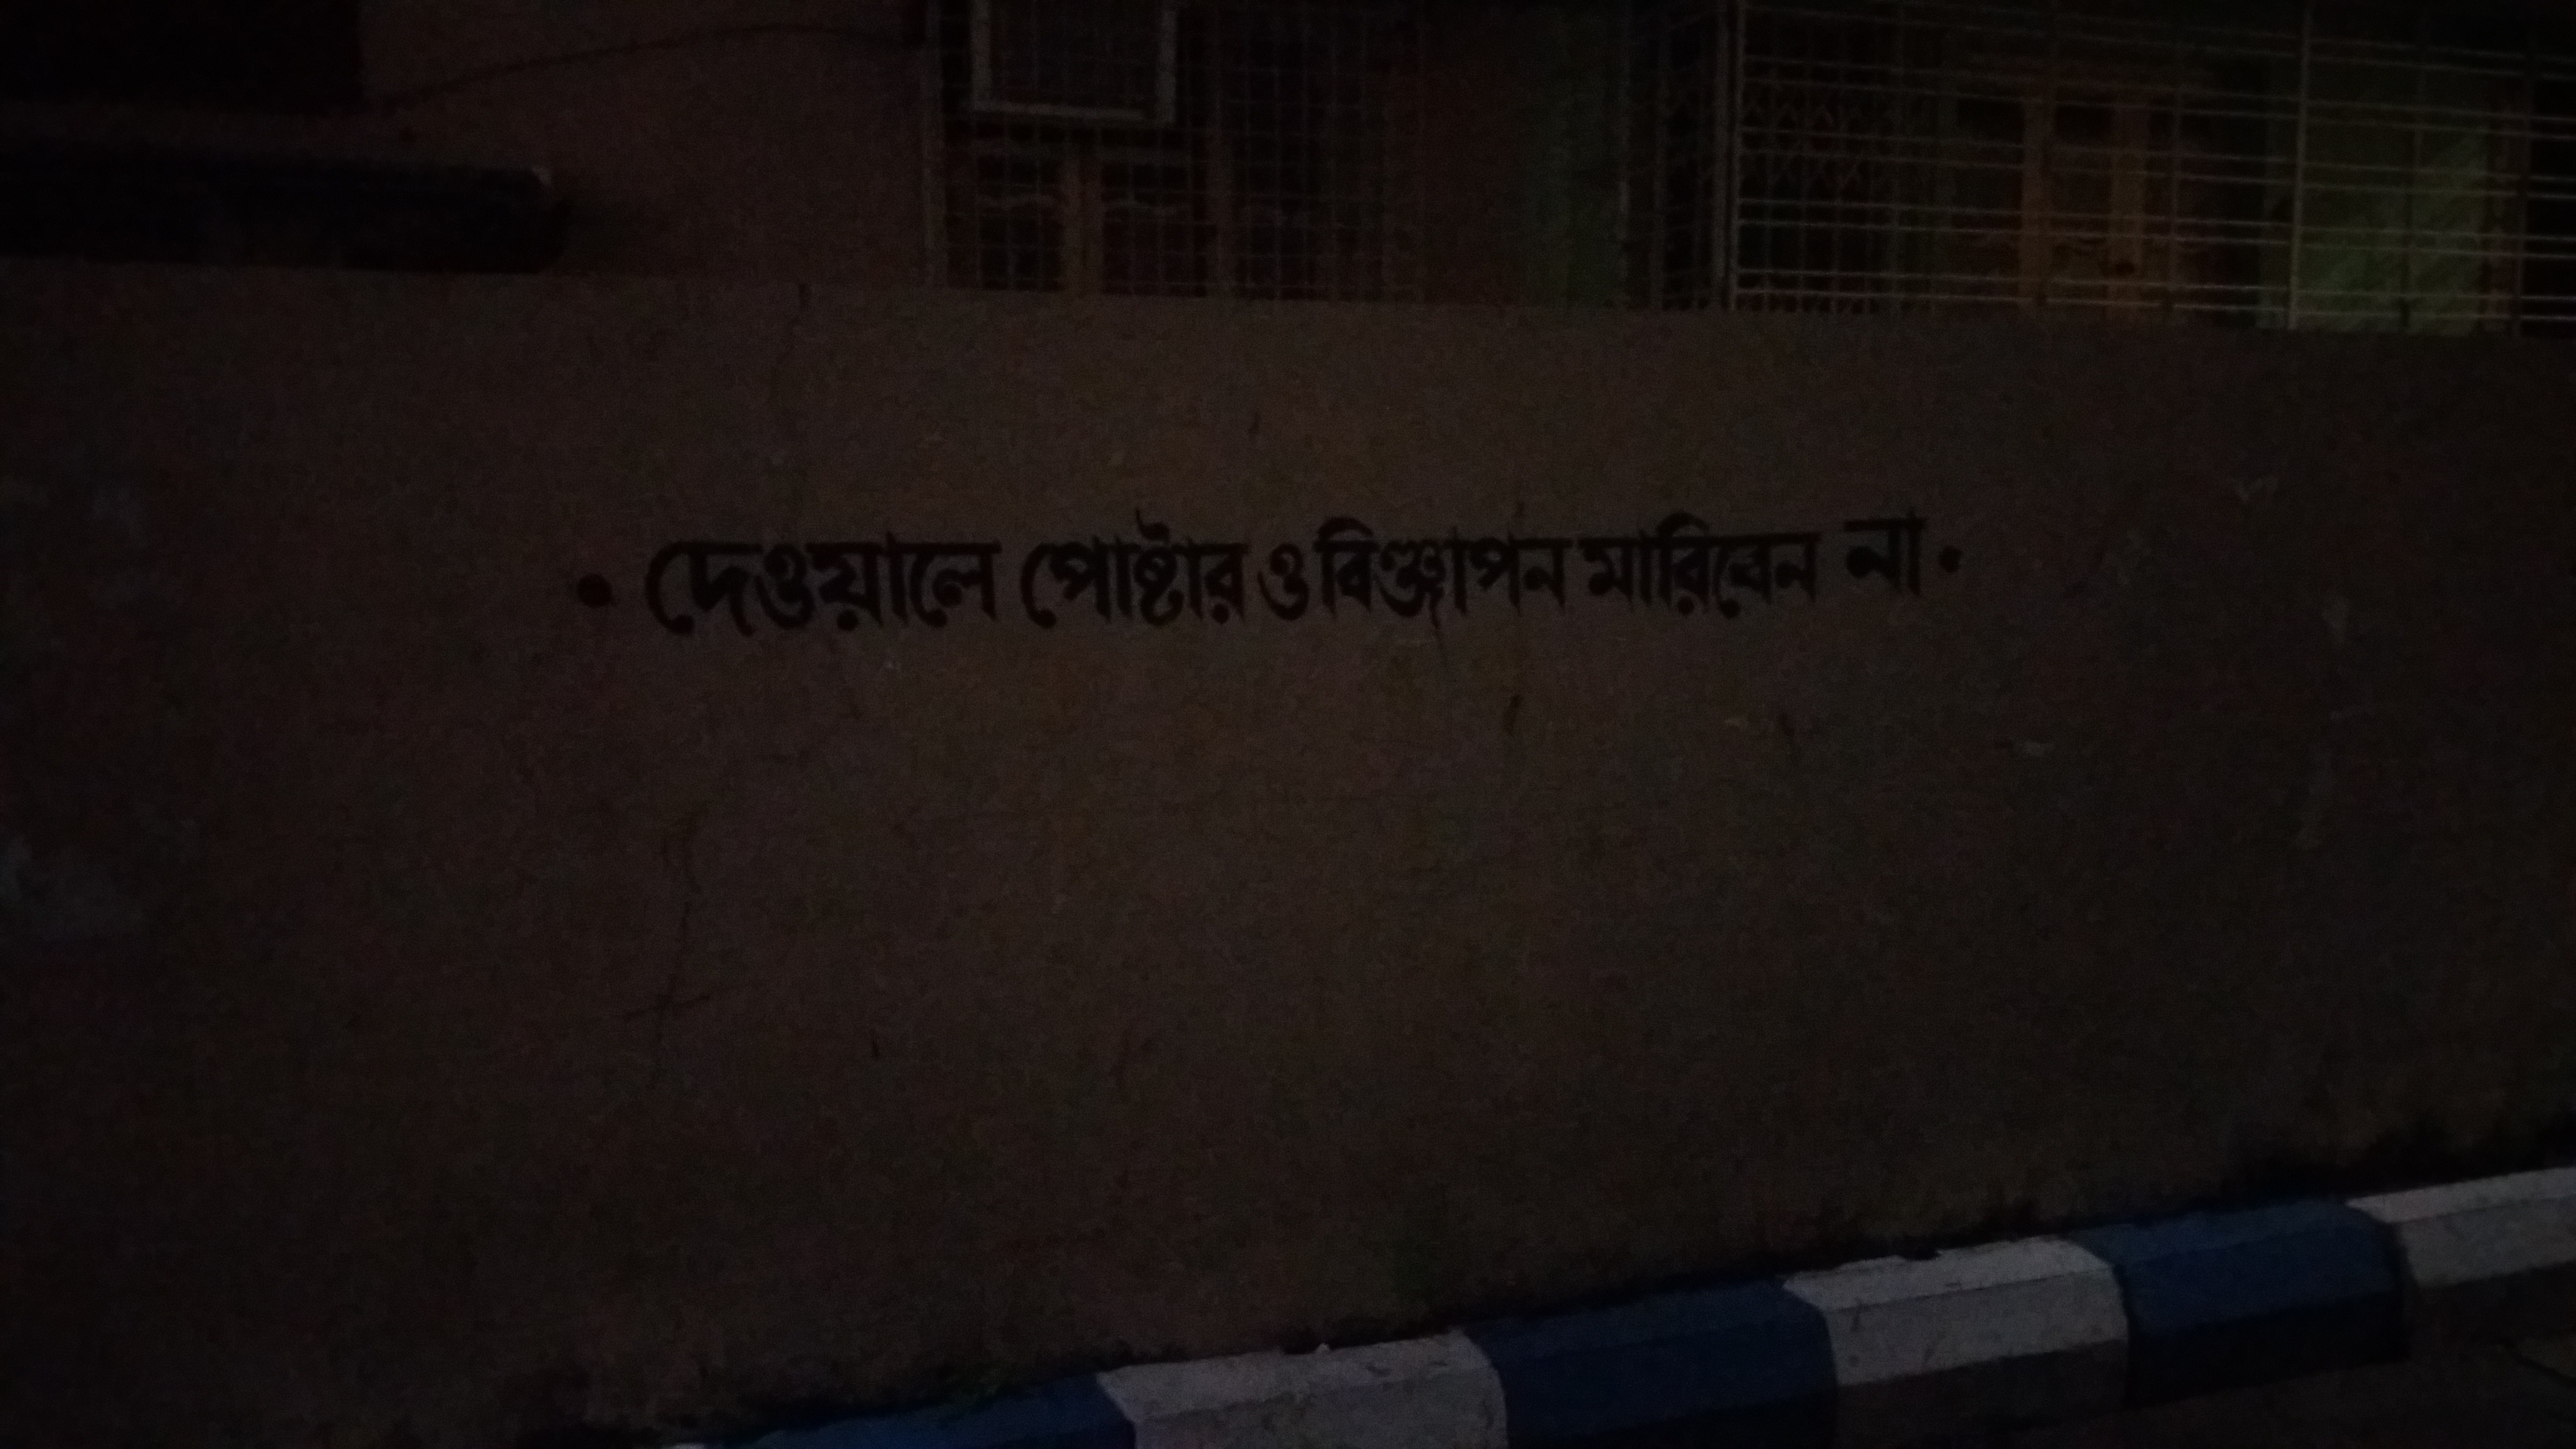 • দেওয়ালে পোষ্টার ও বিঞ্জাপন মারিবেন না •